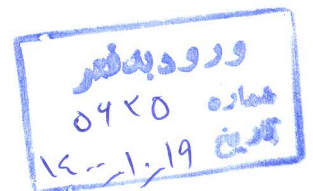 ورود به دفتر
شماره ۵۶۲۵
تاریخ ۱۴۰۰/۱۰/۱۹